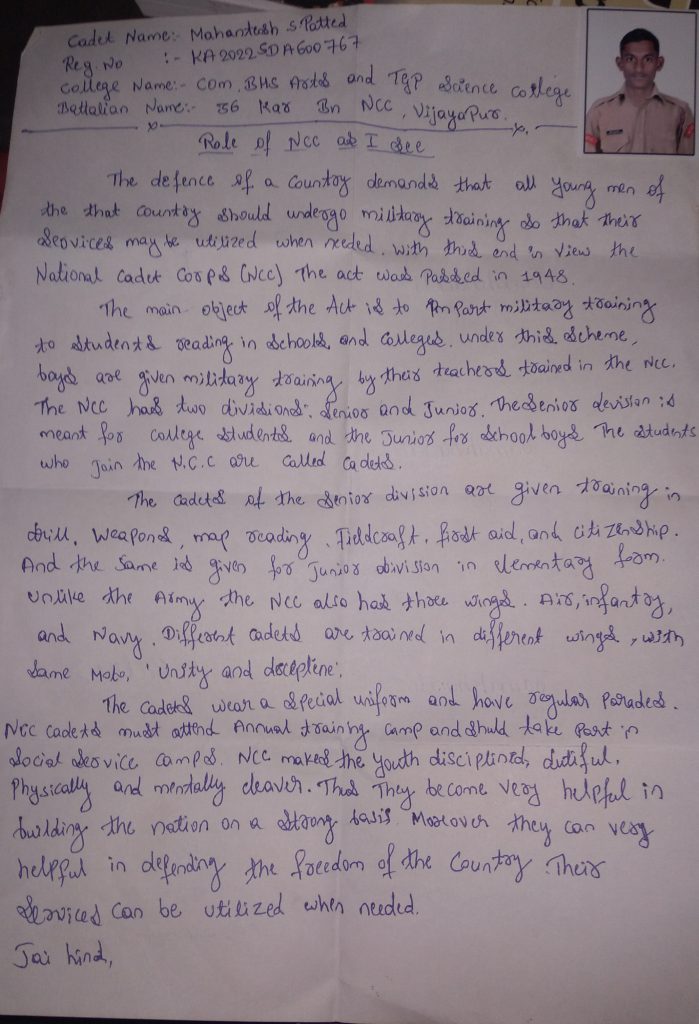 Cadet Name:- Mahantesh S Patted
Reg. No :- KA2022SDA600767
College Name:- Com. BHS Arts and TGP Science college
Battalian Name:- 36 Kar Bn NCC, Vijayapur.
Role of Ncc as I see
The defence of a country demands that all young men of
the that country should undergo military training so that their
services may be utilized when needed. with this end in view the
National Cadet Corps (Ncc) The act was passed in 1948.
The main object of the Act is to Impart military training
to students reading in schools, and colleges. under this scheme,
boys are given military training by their teachers trained in the NCC.
The NCC has two divisions: Senior and Junior. The Senior devision is
meant for college students and the Junior for school boys The students
who join the N.C.C are called Cadets.
The cadets of the senior division are given training in
drill, weapons, map reading, Fieldcraft, first aid, and citizenship.
And the same is given for Junior division in elementary form.
Unlike the Army the NCC also has three wings. Air, infantry,
and Navy. Different cadets are trained in different wings, with
same Moto, 'Unity and desceplene'.
The cadets wear a special uniform and have regular parades.
Ncc cadets must attend Annual training camp and shuld take part in
social service camps. NCC makes the youth disciplined, dutiful,
Physically and mentally cleaver. Thus They become very helpful in
building the nation on a strong basis. Moreover they can very
helpful in defending the freedom of the Country. Their
services can be utilized when needed.
Jai hind,